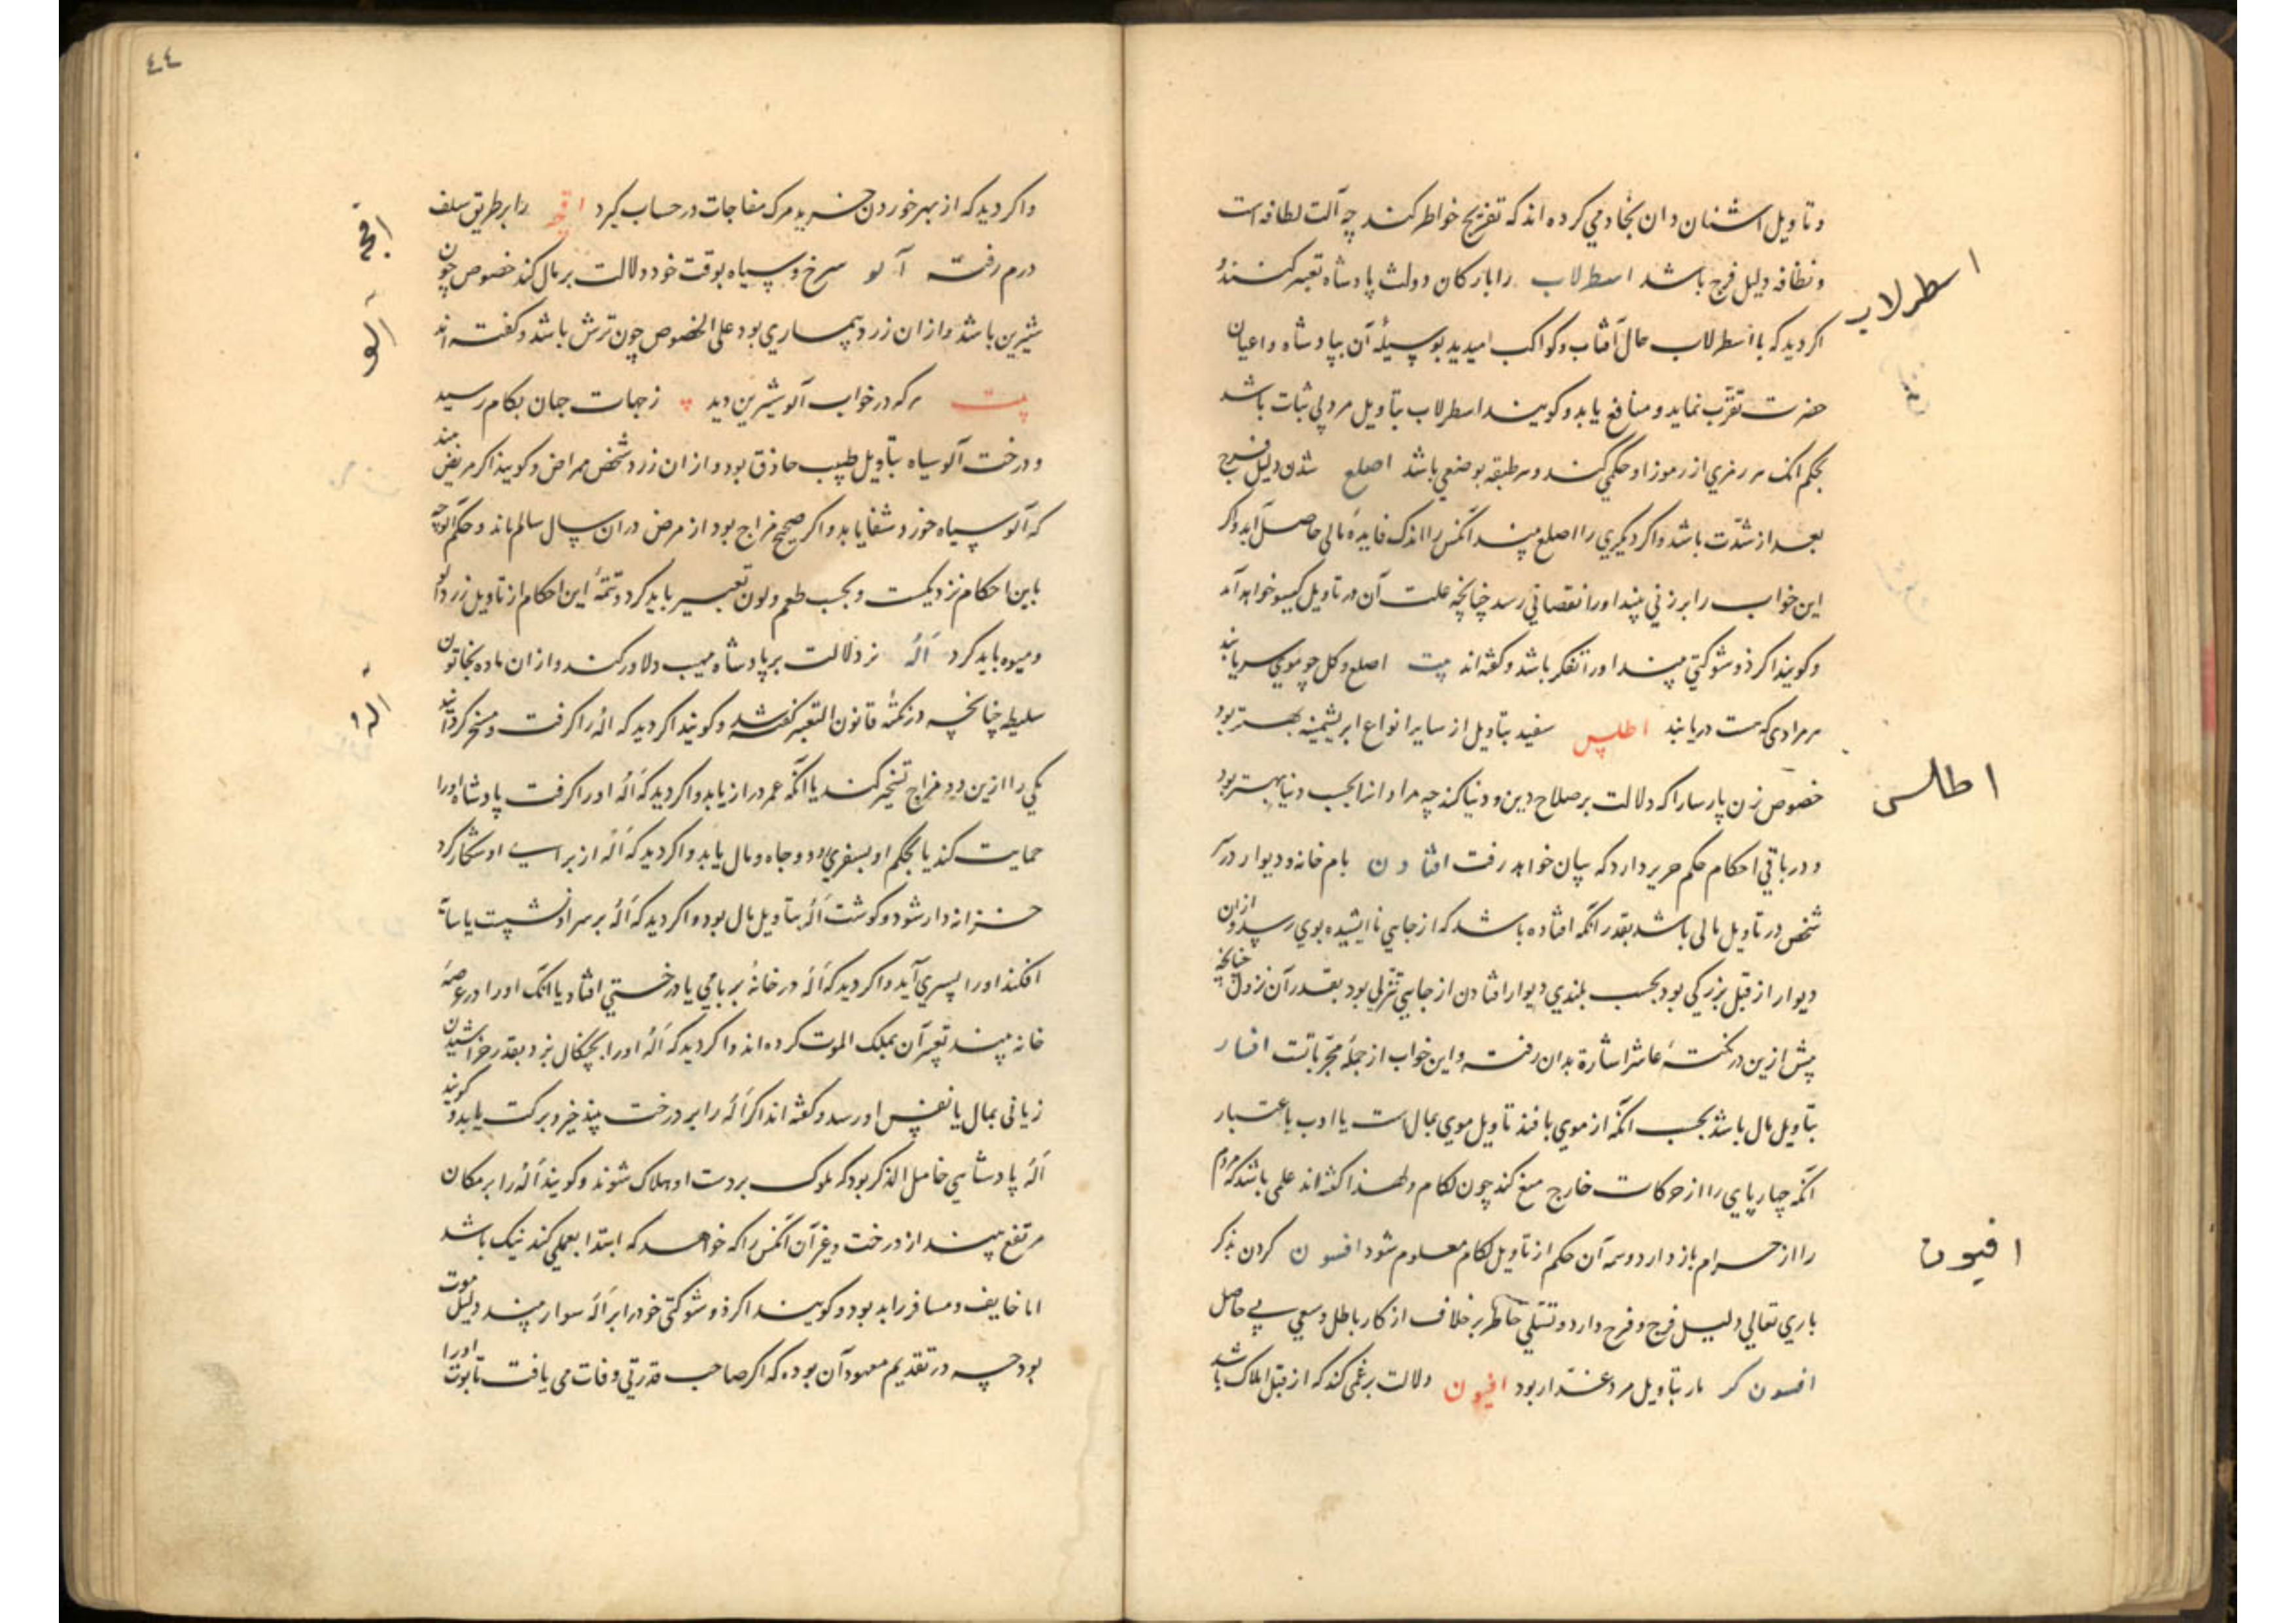 و تاویل اشنان دان بخادمی کرده اند که تفریح خواطر کند چه آلت لطافه است
و نظافه دلیل فرح باشد اسطرلاب را بارکان دولت پادشاه تعبیر کنند و
اسطرلاب
اکر دید که با اسطرلاب حال آفتاب و کواکب میدید بوسیلهٔ آن بپادشاه و اعیان
حضرت تقرّب نماید و منافع یابد و کویند اسطرلاب بتاویل مرد بی ثبات باشد
بحکم انک هر رمزی از رموز او حکمی کند و هر طبقه بوضعی باشد اصلع شدن دلیل فرح
بعد از شدّت باشد و اکر دیکری را اصلع بیند آنکس را اندک فایدهٔ مالی حاصل آید و اکر
این خواب را بر زنی بیند او را نقصانی رسد چنانچه علت آن در تاویل کیسو خواهد آمد
و کویند اکر ذو شوکتی بیند او را تفکر باشد و کفته اند بیت اصلع و کل چو موی سر یابند
هر مرادی که هست دریابند اطلس سفید بتاویل از سایر انواع ابریشمینه بهتر بود
اطلس
خصوص زن پارسا را که دلالت بر صلاح دین و دنیا کند چه مراد او را بحسب دنیا بهتر بود
و در باقی احکام حکم حریر دارد که بیان خواهد رفت افتادن بام خانه و دیوار در آ
شخص در تاویل مالی باشد بقدر آنکه افتاده باشد که از جایی نااندیشیده بوی رسد و از آن
دیوار از قبل بزرکی بود بحسب بلندی دیوار افتادن از جایی تنزلی بود بقدر آن نزول چنانچه
پیش ازین در نکتهٔ عاشر اشارة بدان رفت و این خواب از جملهٔ مجرّباتست افسار
بتاویل مال باشد بحسب آنکه از موی بافند تاویل موی بمال است یا ادب باعتبار
آنکه چارپای را از حرکات خارج منع کند چون لکام و لهذا کفته اند علمی باشد که مردم
را از حرام باز دارد و تتمه آن حکم از تاویل لکام معلوم شود افسون کردن بذکر
افیون
باری تعالی دلیل فرج و فرح دارد و تسلّی خاطر بر خلاف از کار باطل و سعی بی حاصل
افسون کر مار بتاویل مرد غدّار بود افیون دلالت بر غمی کند که از قبل املاک باشد
٤٤
و اکر دید که از بهر خوردن خرید مرک مفاجات در حساب کیرد اقچه را بر طریق سلف
اقچه
درم رفته آلو سرخ و سیاه بوقت خود دلالت بر مال کند خصوص چون
آلو
شیرین باشد و از ان زرد بیماری بود علی الخصوص چون ترش باشد و کفته اند
بیت هر که در خواب آلو شیرین دید ز جهات جهان بکام رسید
و درخت آلو سیاه بتاویل طبیب حاذق بود و از ان زرد شخص ممراض و کویند اکر مریض بیند
که آلو سیاه خورد شفا یابد و اکر صحیح مزاج بود از مرض در ان سال سالم ماند و حکم آلوچه
باین احکام نزدیکست و بحسب طعم و لون تعبیر باید کرد و تتمهٔ این احکام از تاویل زردآلو
و میوه باید کرد اَلُه نر دلالت بر پادشاه مهیب دلاور کند و از ان ماده بخاتون
اَلُه
سلیطه چنانچه در نکتهٔ قانون التعبیر کفته شد و کویند اکر دید که اله را کرفت و مسخر کردانید
یکی را ازین دو مزاج تسخیر کند یا آنکه عمر دراز یابد و اکر دید که اله او را کرفت پادشاه او را
حمایت کند یا بحکم او بسفری رود و جاه و مال یابد و اکر دید که اله از برای او شکار کرد
خزانه دار شود و کوشت اله بتاویل مال بود و اکر دید که اله بر سر او نشست یا سایه
افکند او را پسری آید و اکر دید که اله در خانهٔ بر بامی یا درختی افتاد یا آنک او را در عرصهٔ
خانه بیند تعبیر آن بملک الموت کرده اند و اکر دید که اله او را بچنکال بزد بقدر خراشیدن
زیانی بمال یا نفس او رسد و کفته اند اکر اله را بر درخت بیند خیر و برکت یابد و کویند
اله پادشاهی خامل الذکر بود که ملوک بر دست او هلاک شوند و کویند اله را بر مکان
مرتفع بیند از درخت و غیر آن آنکس را که خواهد که ابتدا بعملی کند نیک باشد
اما خایف و مسافر را بد بود و کویند اکر ذو شوکتی خود را بر اله سوار بیند دلیل موت
بود چه در تقدیم معهود آن بوده که اکر صاحب قدرتی وفات می یافت تابوت او را